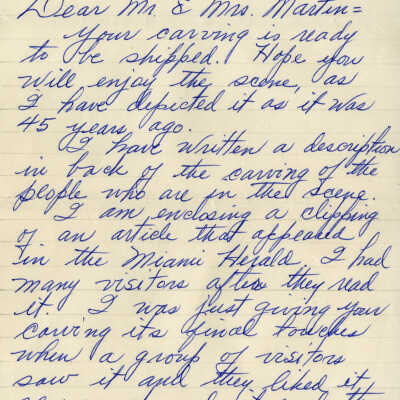 Dear Mr. & Mrs. Martin=
Your carving is ready
to be shipped. Hope you
will enjoy the scene, as
I have depicted it as it was
45 years ago.
I have written a description
in back of the carving of the
people who are in the scene.
I am enclosing a clipping
of an article that appeared
in the Miami Herald. I had
many visitors after they read
it. I was just giving your
carving its final touches
when a group of visitors
saw it and they liked it